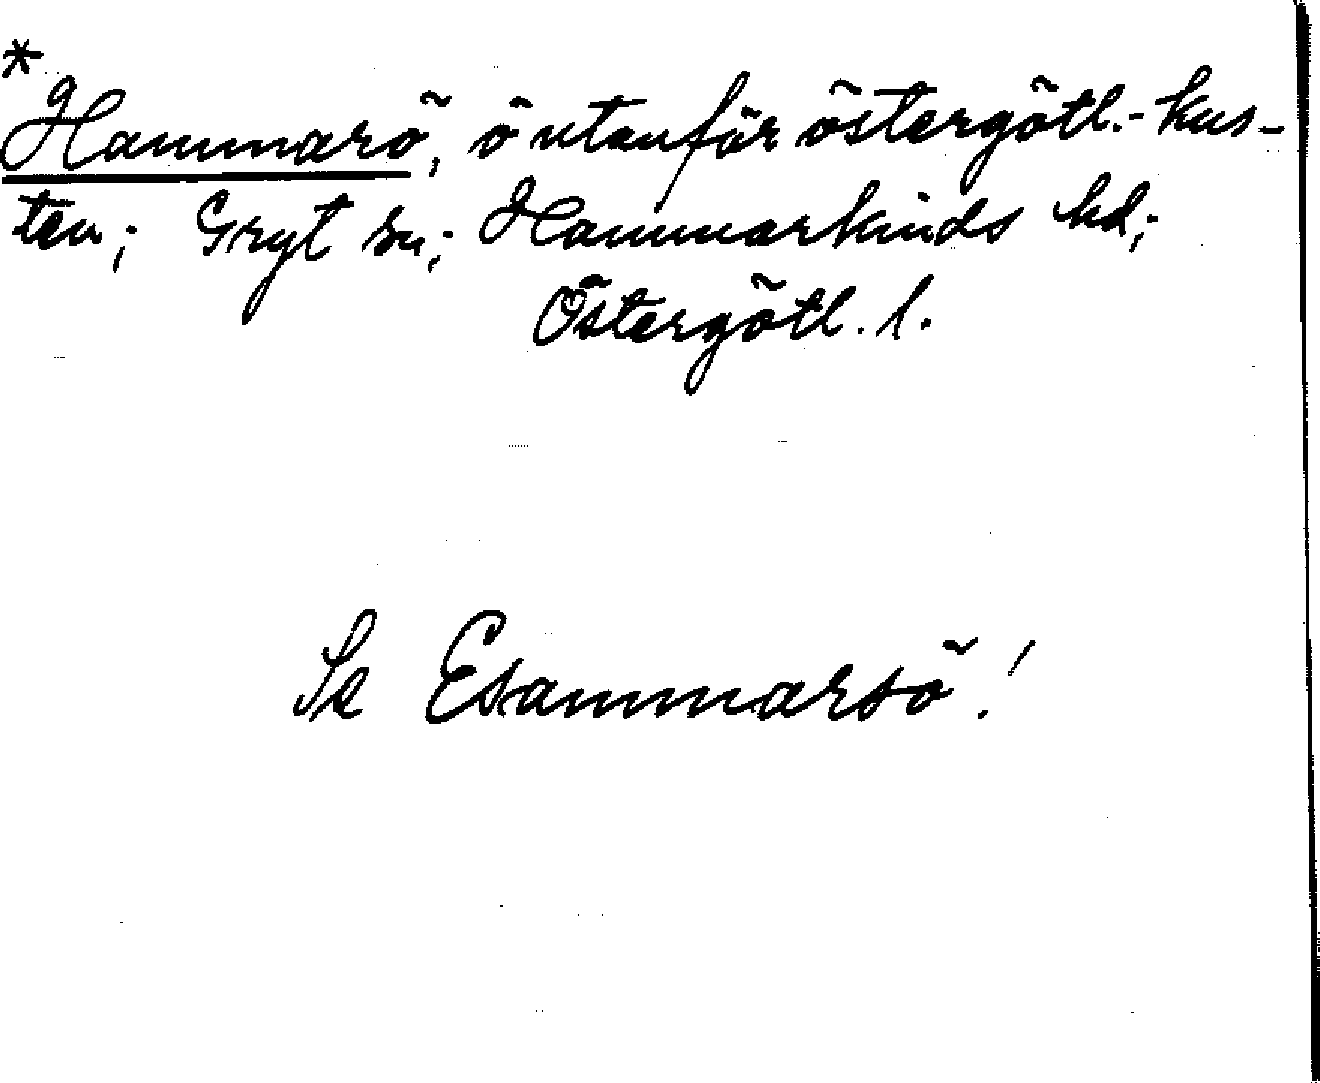 *
Hammarö, ö utanför östergötl.-kus-
ten; Gryt sn; Hammarkinds hd;
Östergötl. l.
Se Esammarsö!